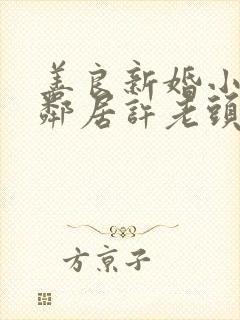 善良新婚小
鄰居許老頭
方京子